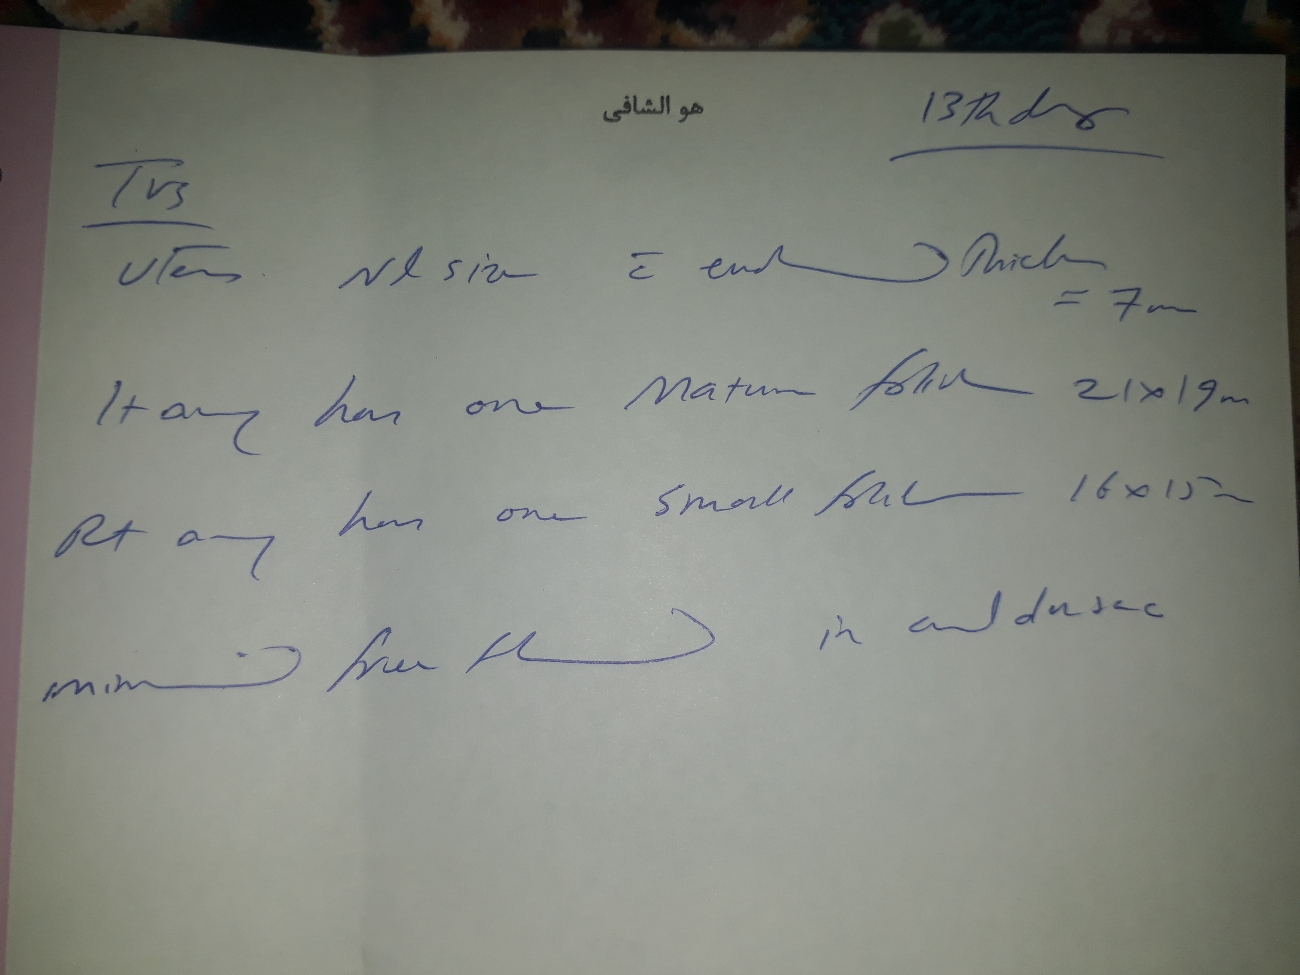 هو الشافی
13th day
TVS
Uterus Nl size c̄ end Thick
= 7mm
Lt ovary has one Mature follicle 21x19mm
Rt ovary has one small follicle 16x15mm
minimal free fluid in cul de sac